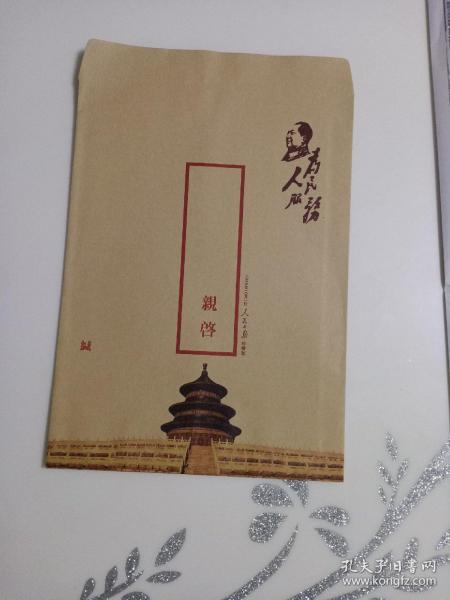 为人民服務
親啓
人民日報
緘
孔夫子旧书网
www.kongfz.com